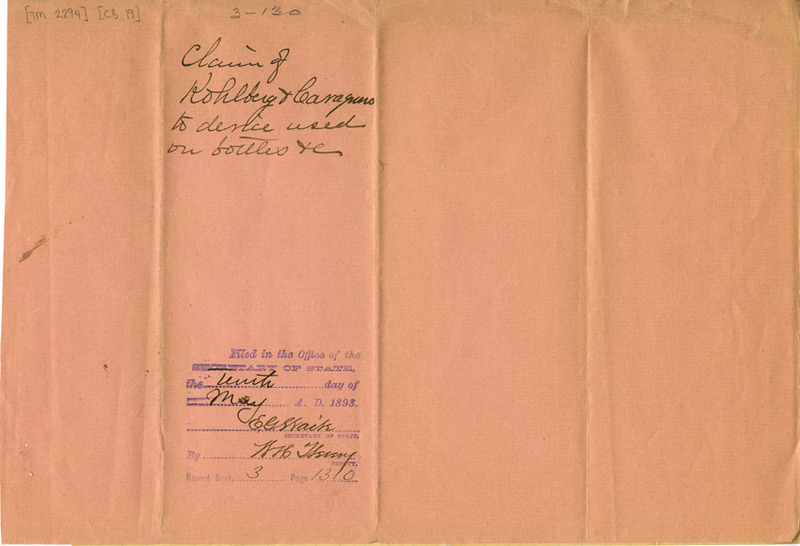 [TM 2294] [CB 19]
3-130
Claim of
Kohlberg & Cavagnaro
to device used
on bottles &c
Filed in the Office of the
SECRETARY OF STATE,
the tenth day of
May A. D. 1893.
E G Waite
SECRETARY OF STATE.
By
DEPUTY.
Record Book, 3 Page 130